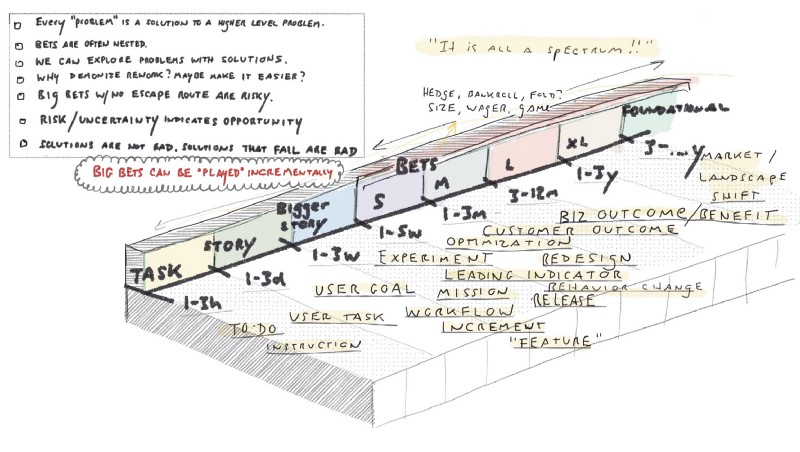 Every "problem" is a solution to a higher level problem.
Bets are often nested.
We can explore problems with solutions.
Why demonize rework? Maybe make it easier?
Big bets w/no escape route are risky.
Risk/uncertainty indicates opportunity
Solutions are not bad. Solutions that fall are bad
Big bets can be "played" incrementally
"It is all a spectrum!!"
Hedge, bankroll, fold?
Size, wager, game
Task
Story
Bigger
Story
Bets
S
M
L
XL
Foundational
1-3h
1-3d
1-3w
1-5w
1-3m
3-12m
1-3y
3-...y
Market/
Landscape
Shift
Biz outcome/benefit
Customer outcome
Optimization
Experiment
Redesign
Leading indicator
Behavior change
User goal
Mission
Release
User task
Workflow
Increment
To-do
Instruction
"Feature"